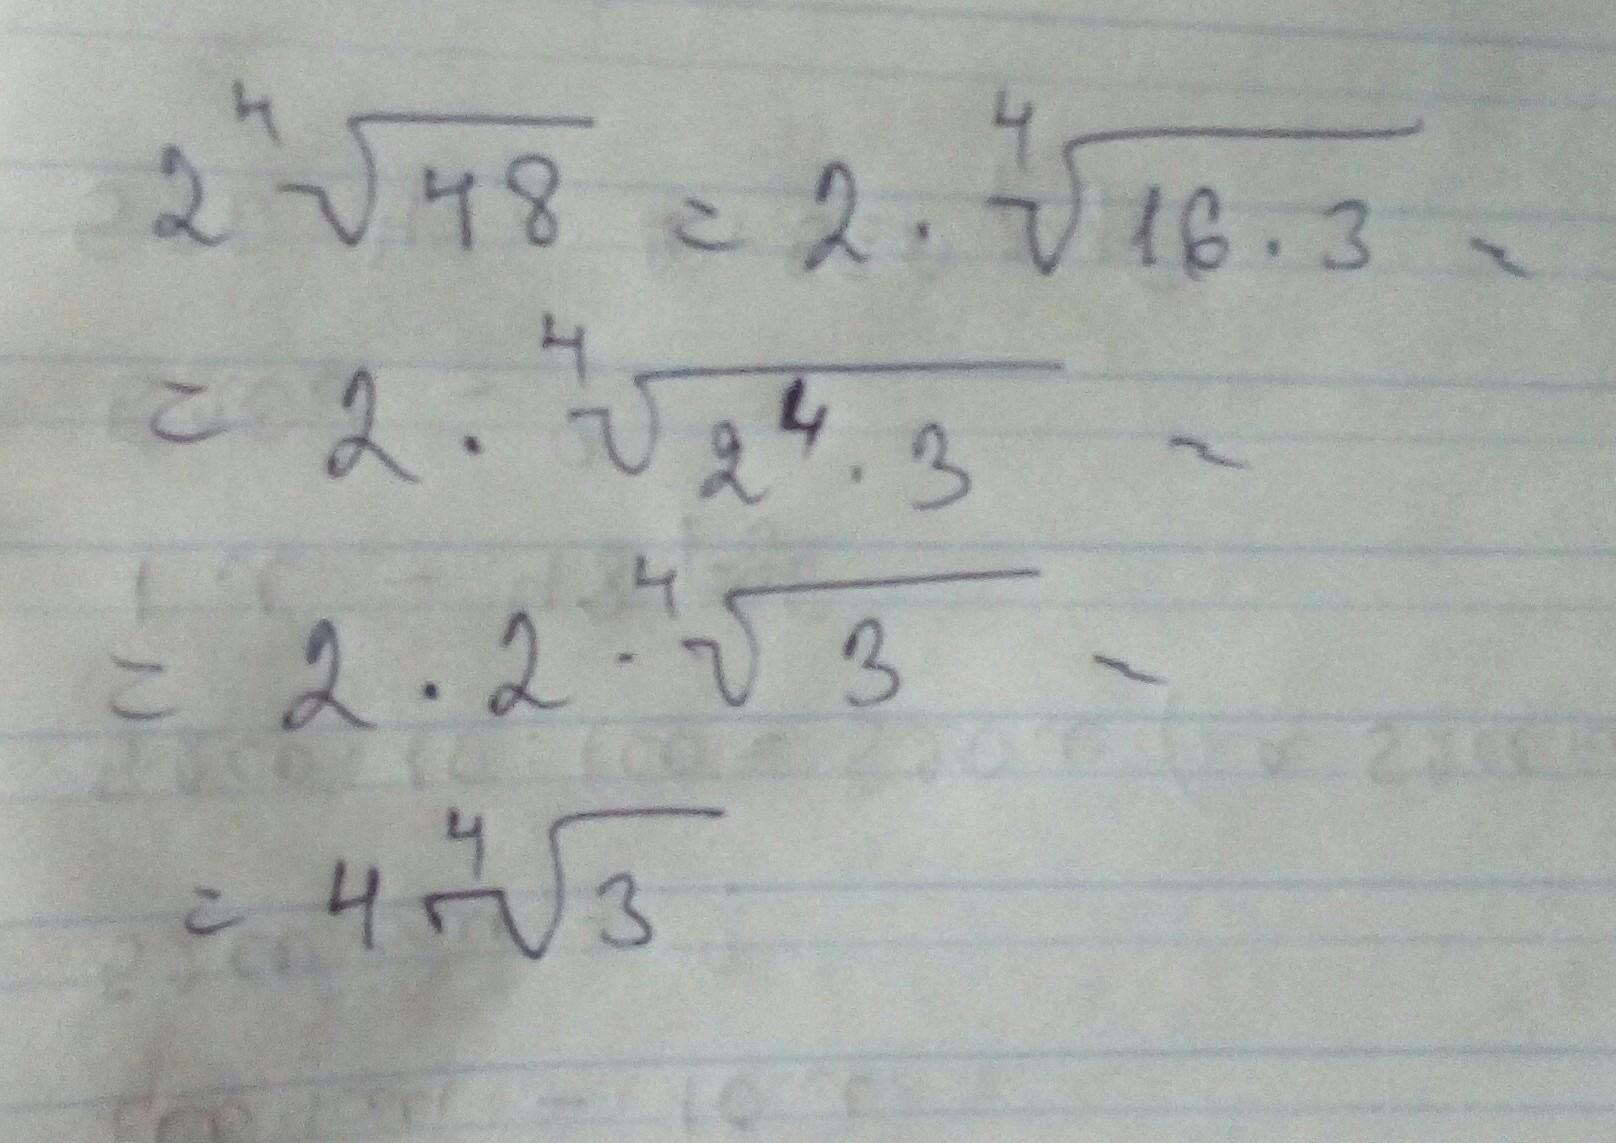 2 ⁴√48 = 2 · ⁴√16 · 3 ~
= 2 · ⁴√2⁴ · 3 ~
= 2 · 2 · ⁴√3 ~
= 4 ⁴√3